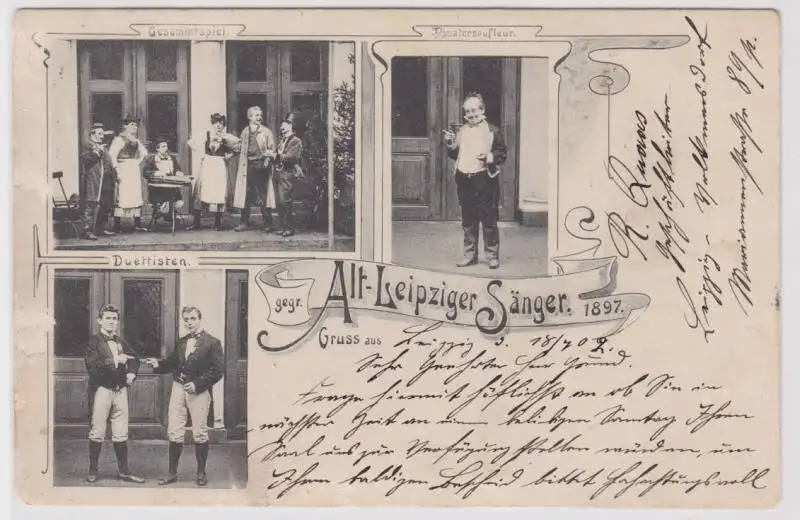 Gesammtspiel.
Theatersoufleur.
Duettisten.
gegr. Alt-Leipziger Sänger. 1897.
Gruss aus Leipzig d. 18/4 02.
Sehr Geehrter Herr Grund.
Frage hiermit höflichst an ob Sie in
nächster Zeit an einem beliebigen Samstag Ihren
Saal uns zur Verfügung stellen würden, um
Ihren baldigen Bescheid bittet Hochachtungsvoll
R.
Geschäftsleiter
Leipzig - Volkmarsdorf
Mariannenstraße 89/I.